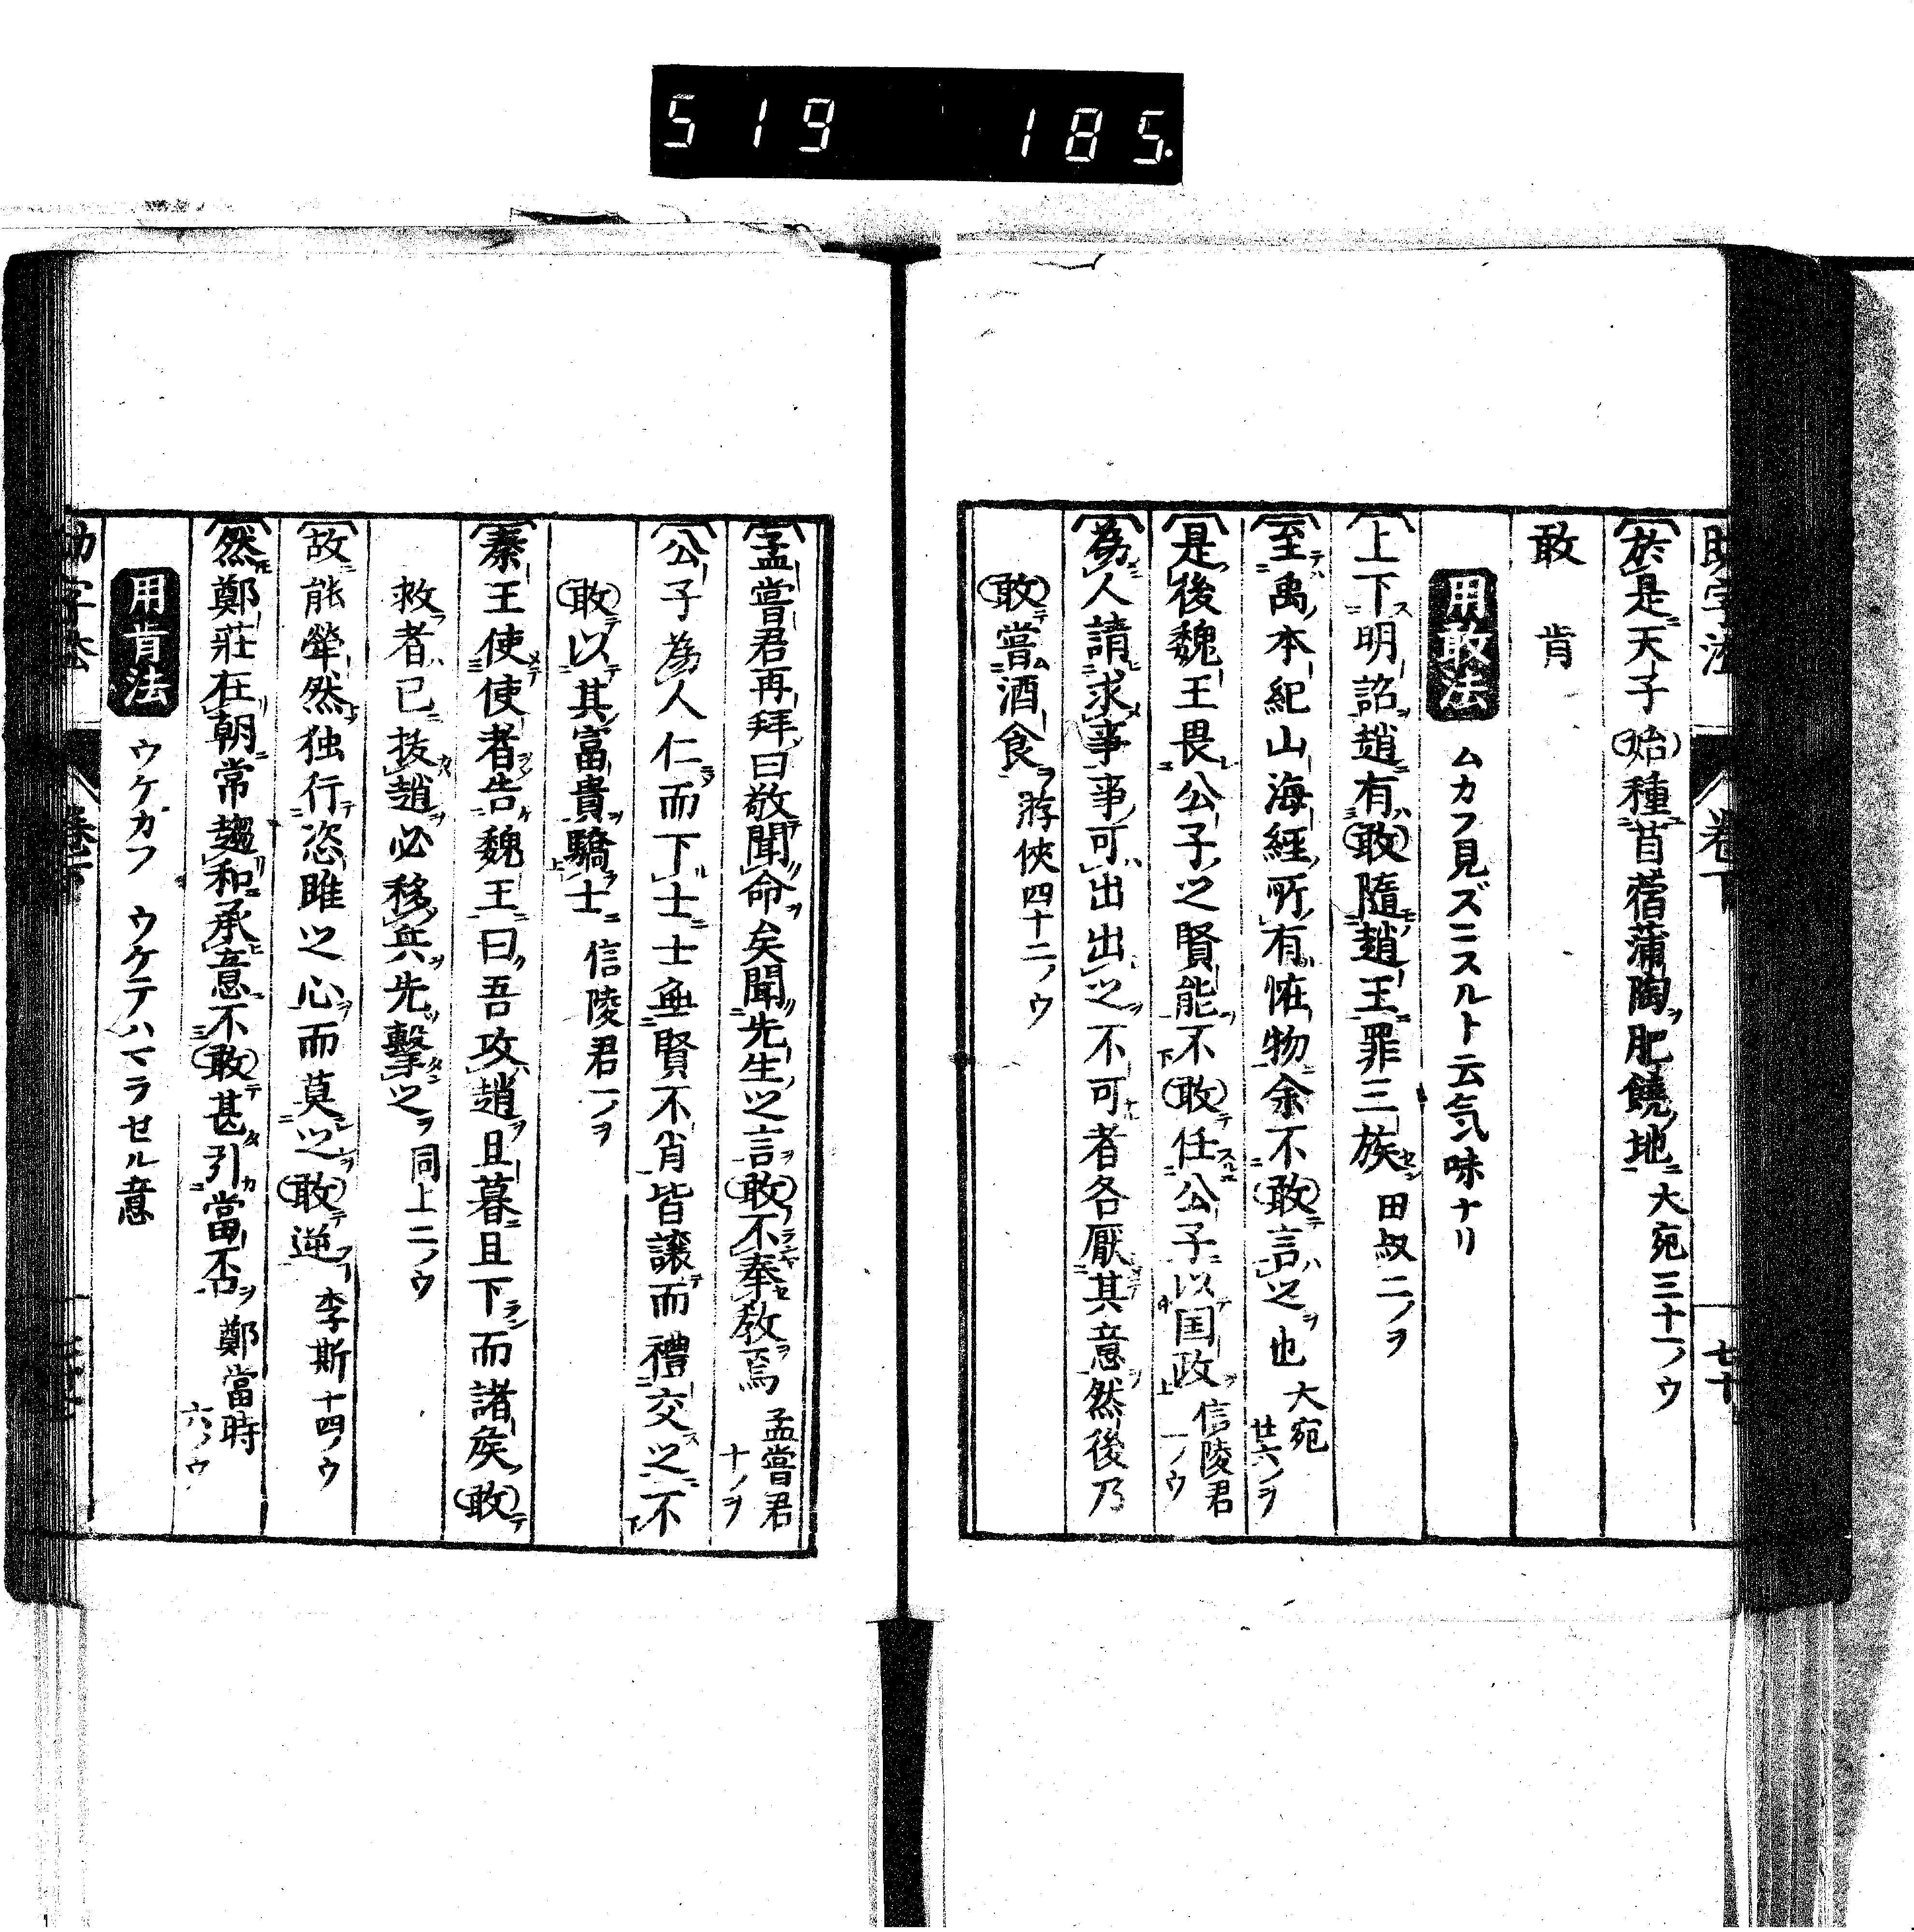 519 185
助字法 卷下 七十
於是天子始種苜蓿蒲陶肥饒地 大宛三十一ノウ
敢 肯
用敢法 ムカフ見ズニスルト云気味ナリ
上下明詔趙有敢隨趙王罪三族 田叔二ノヲ
至禹本紀山海經所有恠物余不敢言之也 大宛廿六ノヲ
是後魏王畏公子之賢能不敢任公子以国政 信陵君一ノウ
為人請求事事可出出之不可者各厭其意然後乃
敢嘗酒食 游侠四十二ノウ
孟嘗君再拜曰敬聞命矣聞先生之言敢不奉教焉 孟嘗君十ノヲ
公子為人仁而下士士無賢不肖皆譲而禮交之不
敢以其富貴驕士 信陵君一ノヲ
秦王使使者告魏王曰吾攻趙且暮且下而諸矦敢
救者已抜趙必移兵先擊之 同上二ノウ
故能犖然独行恣睢之心而莫之敢逆 李斯十四ノウ
然鄭莊在朝常趨和承意不敢甚引當否 鄭當時六ノウ
用肯法 ウケガフ ウケテハマラセル意